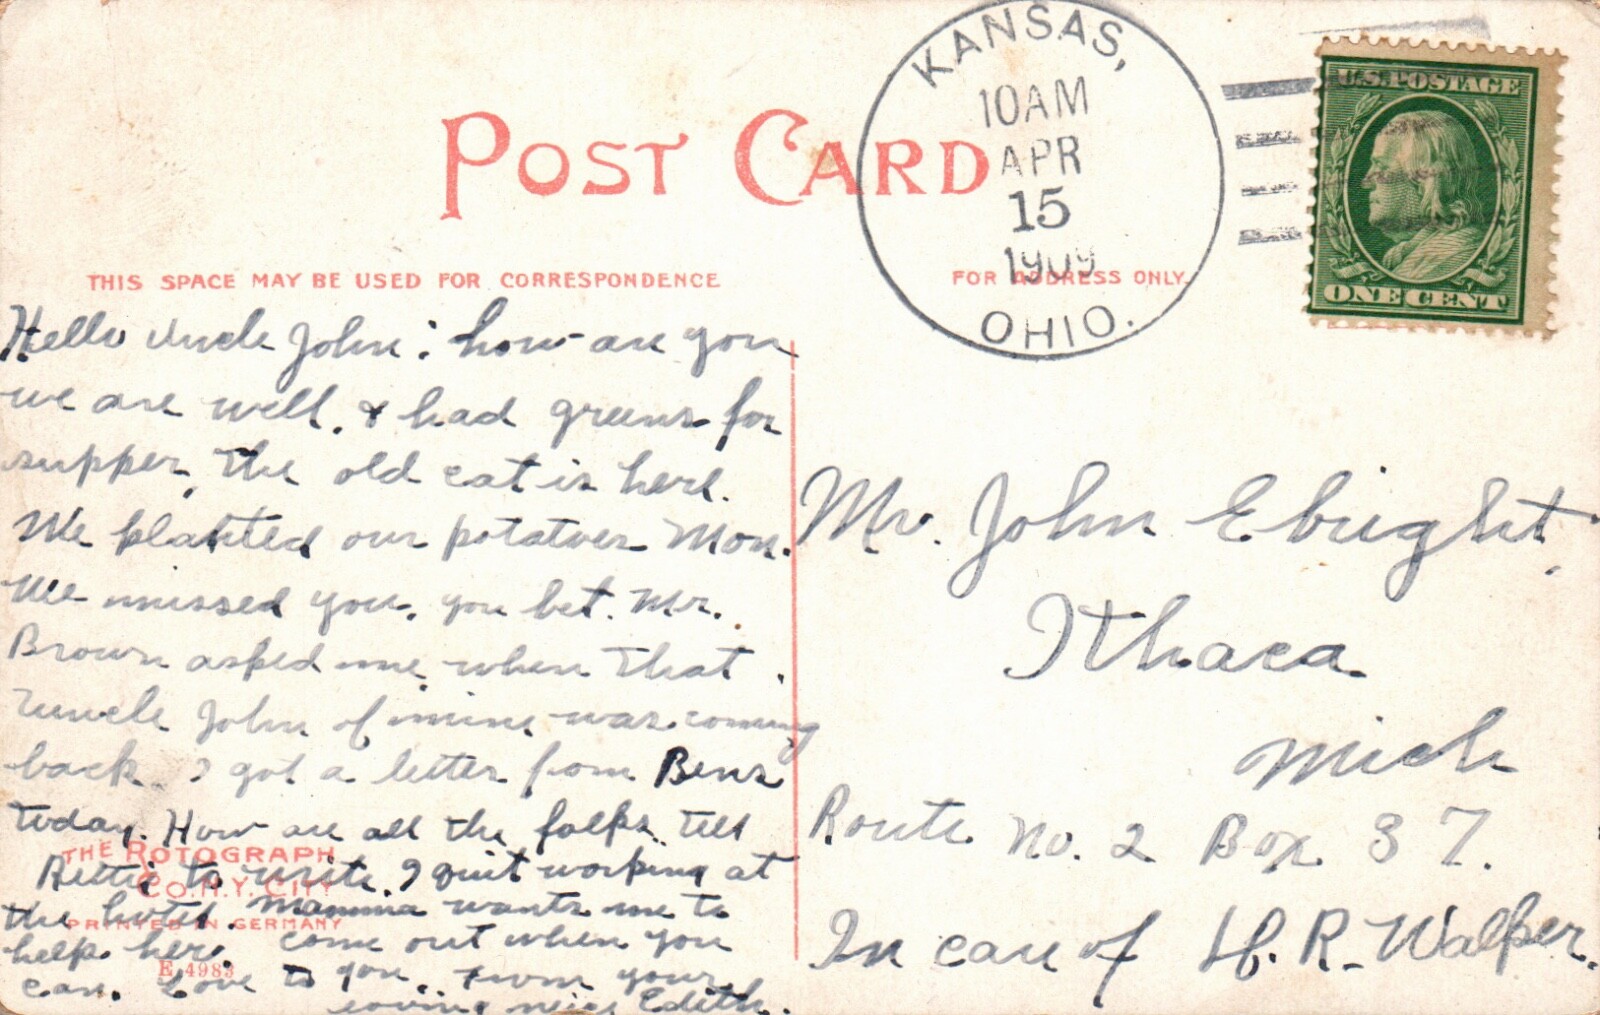 KANSAS,
10AM
APR
15
1909
OHIO.
U.S. POSTAGE
ONE CENT
POST CARD
THIS SPACE MAY BE USED FOR CORRESPONDENCE
FOR ADDRESS ONLY.
Hello Uncle John: how are you
we are well. & had greens for
supper, the old cat is here.
We planted our potatoes Mon.
We missed you, you bet. Mr.
Brown asked me when that
Uncle John of mine was coming
back. I got a letter from Bens
today. How are all the folks. tell
Bettie to write. I quit working at
the hotel. Mamma wants me to
help here. come out when you
can. Love to you. From your
loving neice Edith.
THE ROTOGRAPH
CO. N.Y. CITY
PRINTED IN GERMANY
E 4983
Mr. John Ebright,
Ithaca
Mich
Route No. 2 Box 37.
In care of H. R. Walker.